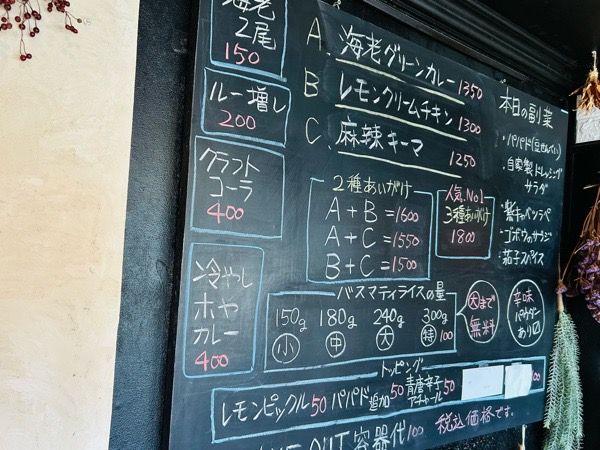 海老
2尾
150
ルー増し
200
クラフト
コーラ
400
冷やし
ホヤ
カレー
400
A. 海老グリーンカレー 1350
B レモンクリームチキン 1300
C. 麻辣キーマ 1250
2種あいがけ
A+B=1600
A+C=1550
B+C=1500
人気.No1
3種あいがけ
1800
バスマティライスの量
150g 180g 240g 300g
小 中 大 特 100
大まで
無料
辛味
パウダー
あり
トッピング
レモンピックル50 パパド追加50 青唐辛子アチャール50
00
OUT容器代100 税込価格です。
本日の副菜
・パパド(豆せんべい)
・自家製ドレッシング
サラダ
・紫キャベツラペ
・ゴボウのサブジ
・茄子スパイス